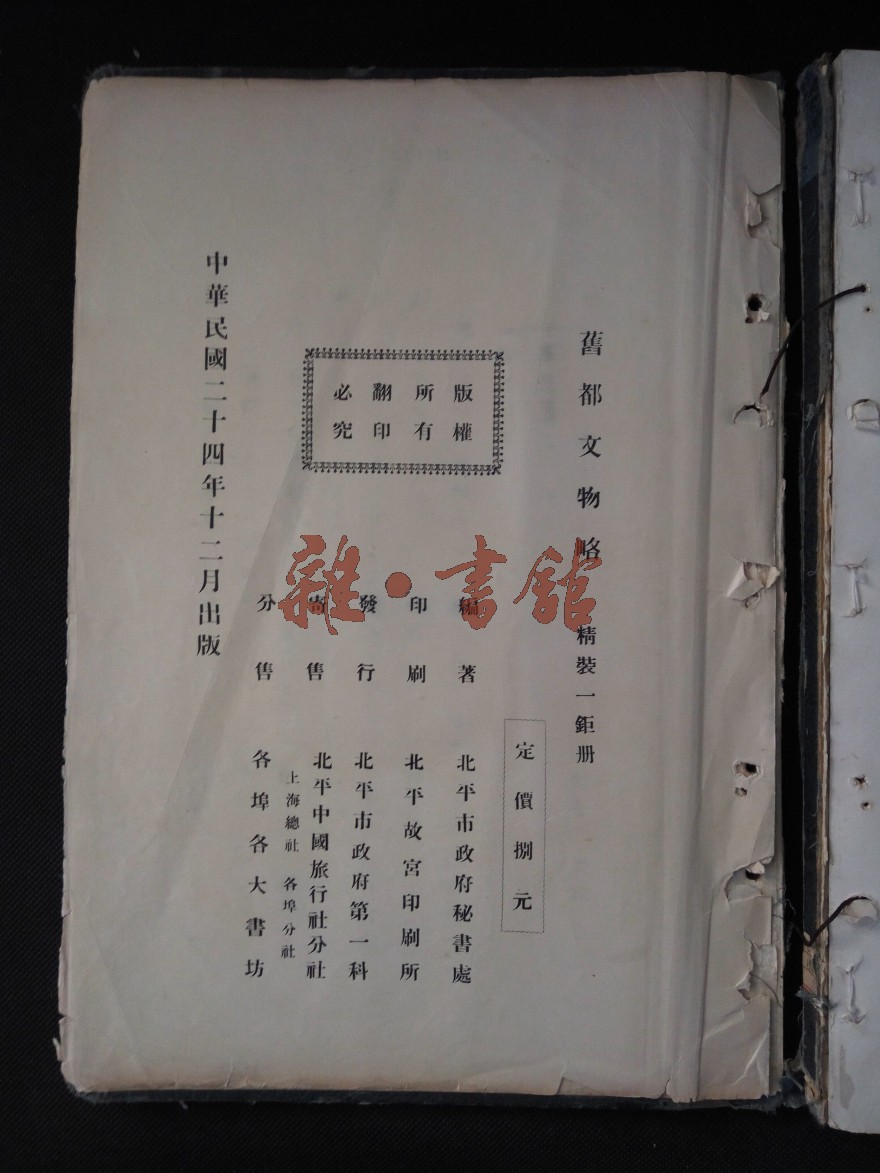 舊都文物略 精裝一鉅册
定價捌元
版權
所有
翻印
必究
編著 北平市政府秘書處
印刷 北平故宮印刷所
發行 北平市政府第一科
寄售 北平中國旅行社分社
上海總社 各埠分社
分售 各埠各大書坊
中華民國二十四年十二月出版
雜·書館